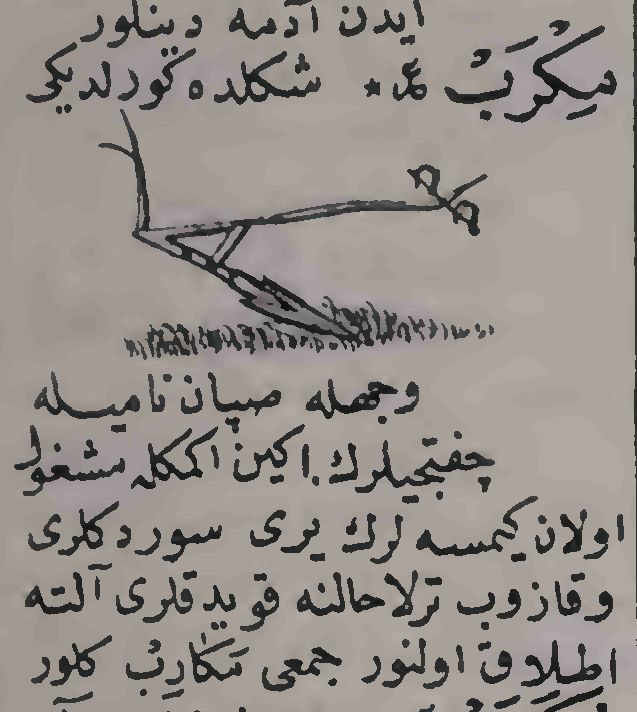 ایدن آدمه دینلور
مِكْرَبْ ع م شكلده كورلدیكی
وجهله صپان نامیله
چفتجیلرك اكین اكمكله مشغول
اولان كیمسه لرك یری سوردكلری
وقازوب ترلا حالنه قویدقلری آلته
اطلاق اولنور جمعی مَكَارِبْ كلور